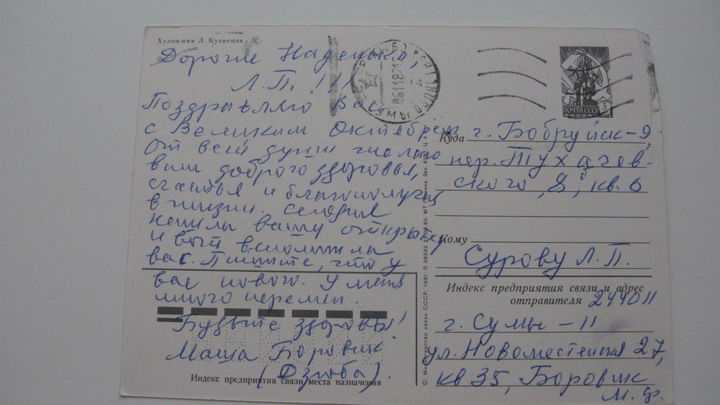 Художник Л. Кузнецов
Дорогие Наденька,
Л.П.!!!
Поздравляю Вас
с Великим Октябрем
от всей души желаю
вам доброго здоровья,
счастья и благополучия
в жизни. Сегодня
нашла вашу открытку
и вот вспомнила
вас. Пишите, что у
вас нового. У меня
много перемен.
Будьте здоровы!
Маша Боровик
(Дзюба).
Индекс предприятия связи места назначения
СУМЫ
ПОЧТА СССР
Куда г. Бобруйск-9,
пер. Тухачев-
ского, 8, кв. 6
Кому
Сурову Л.П.
Индекс предприятия связи и адрес
отправителя 244011
г. Сумы-11
ул. Новоместенская 27,
кв 35, Боровик
М. Ф.